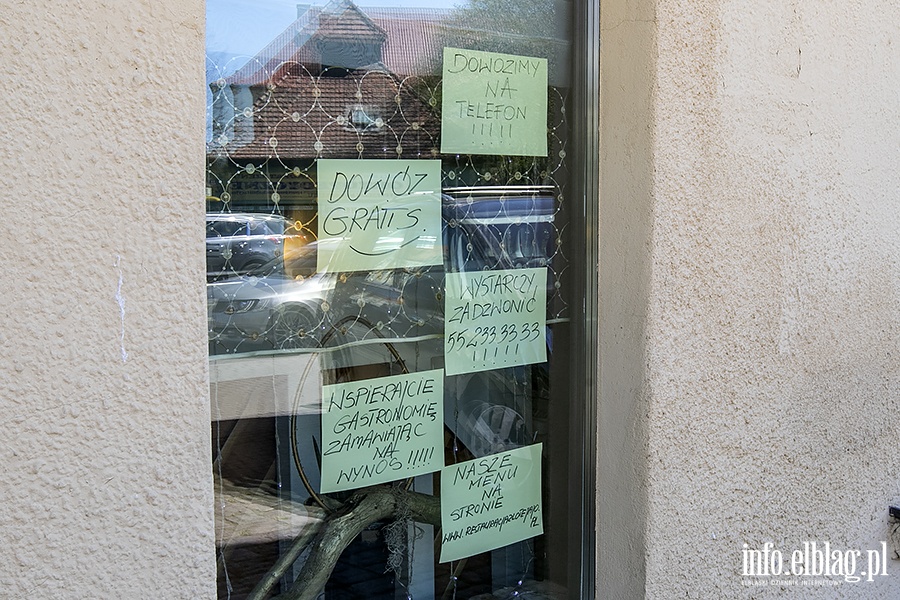 DOWOZIMY
NA
TELEFON
!!!!!
DOWÓZ
GRATIS.
WYSTARCZY
ZADZWONIĆ
55 233 33 33
!!!!!
WSPIERAJCIE
GASTRONOMIĘ
ZAMAWIAJĄC
NA
WYNOS!!!!!
NASZE
MENU
NA
STRONIE
info.elblag.pl
ELBLĄSKI DZIENNIK INTERNETOWY